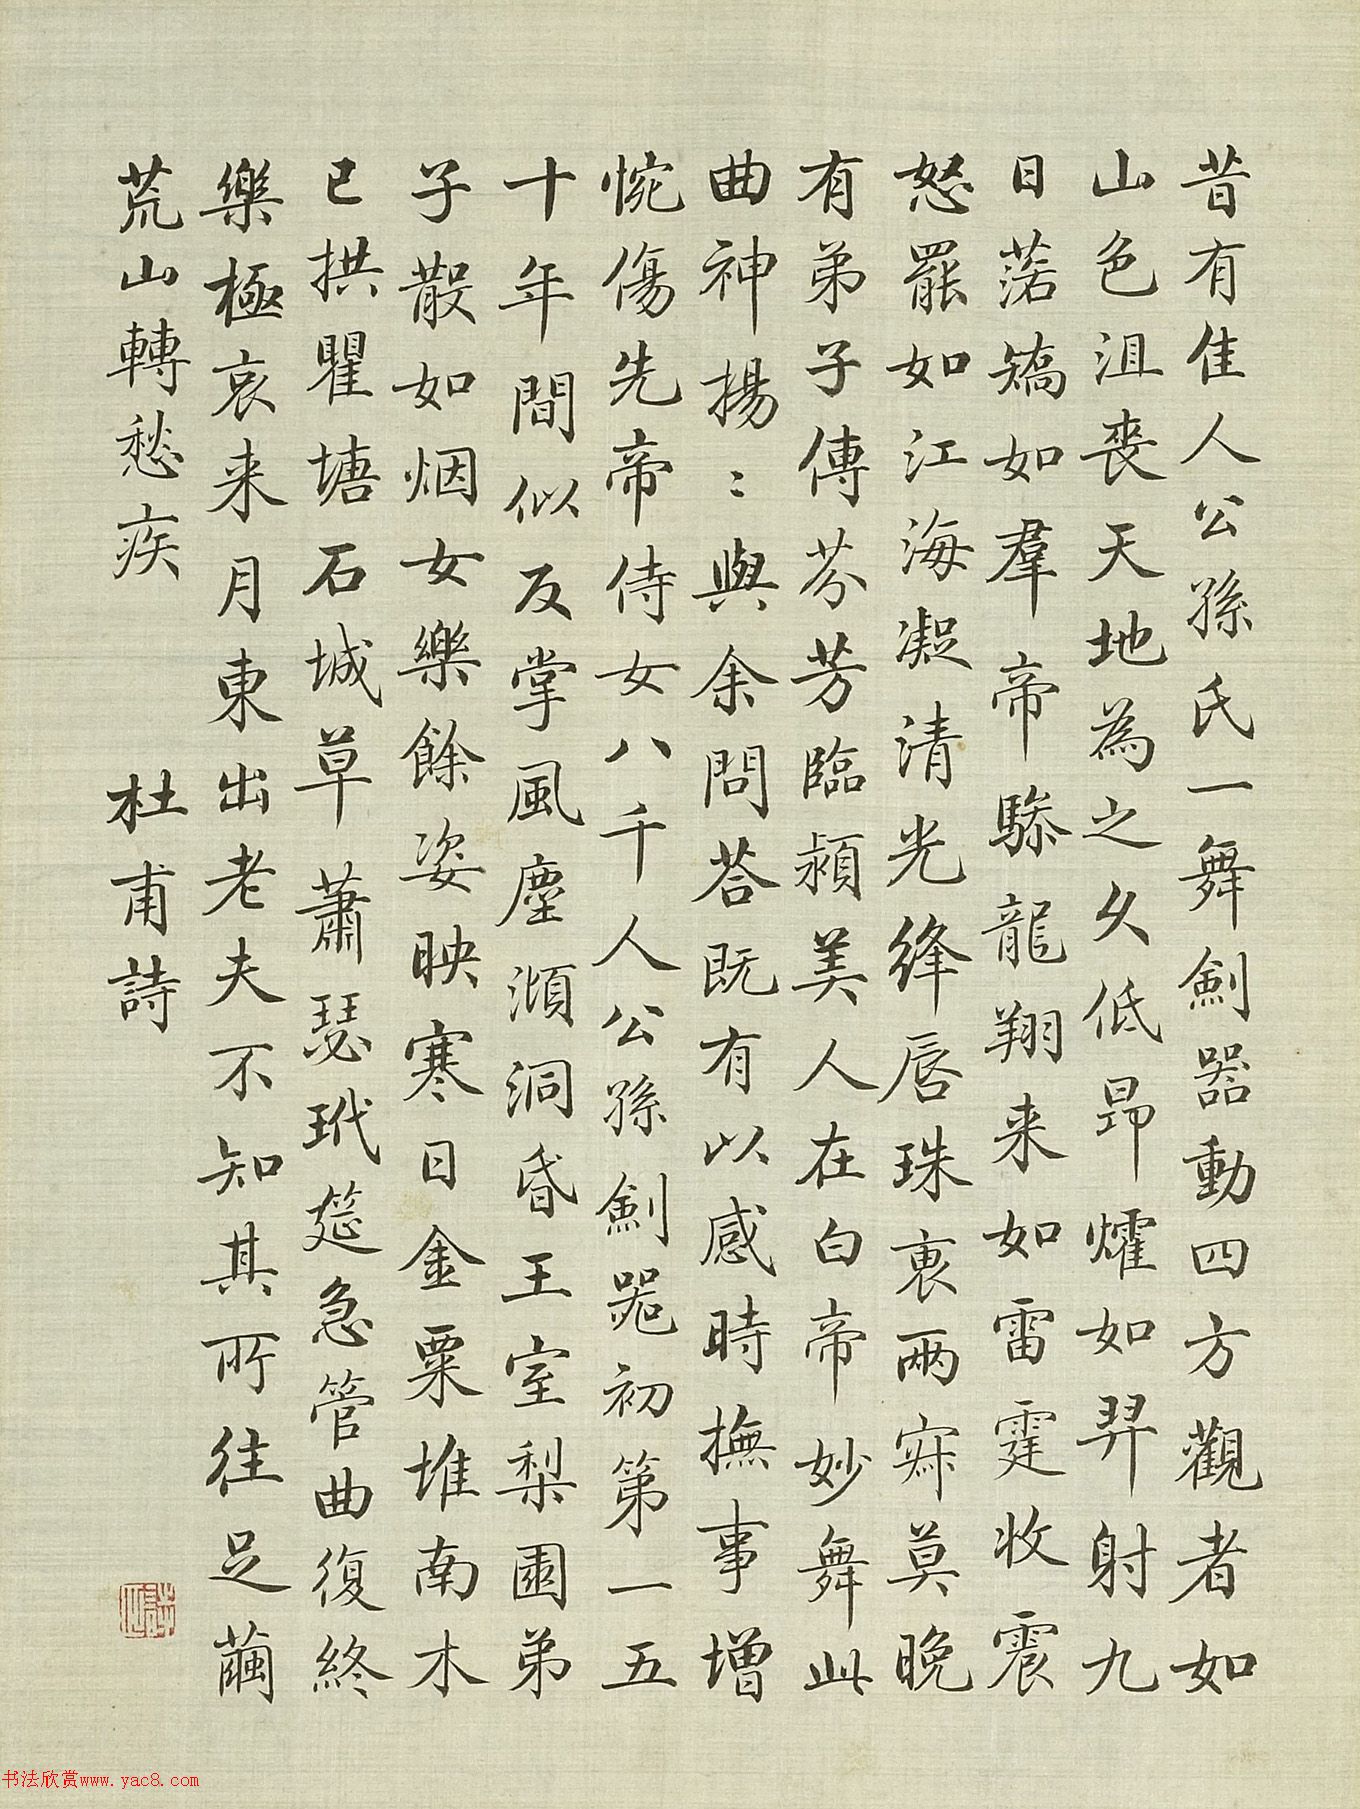 昔有佳人公孫氏一舞劍器動四方觀者如
山色沮喪天地為之久低昂㸌如羿射九
日落矯如羣帝驂龍翔来如雷霆收震
怒罷如江海凝清光絳唇珠袖兩寂莫晚
有弟子傳芬芳臨潁美人在白帝妙舞此
曲神揚〻與余問荅既有以感時撫事增
惋傷先帝侍女八千人公孫劍器初第一五
十年間似反掌風塵澒洞昏王室梨園弟
子散如烟女樂餘姿映寒日金粟堆南木
已拱瞿塘石城草蕭瑟玳筵急管曲復終
樂極哀来月東出老夫不知其所往足繭
荒山轉愁疾 杜甫詩
书法欣赏www.yac8.com